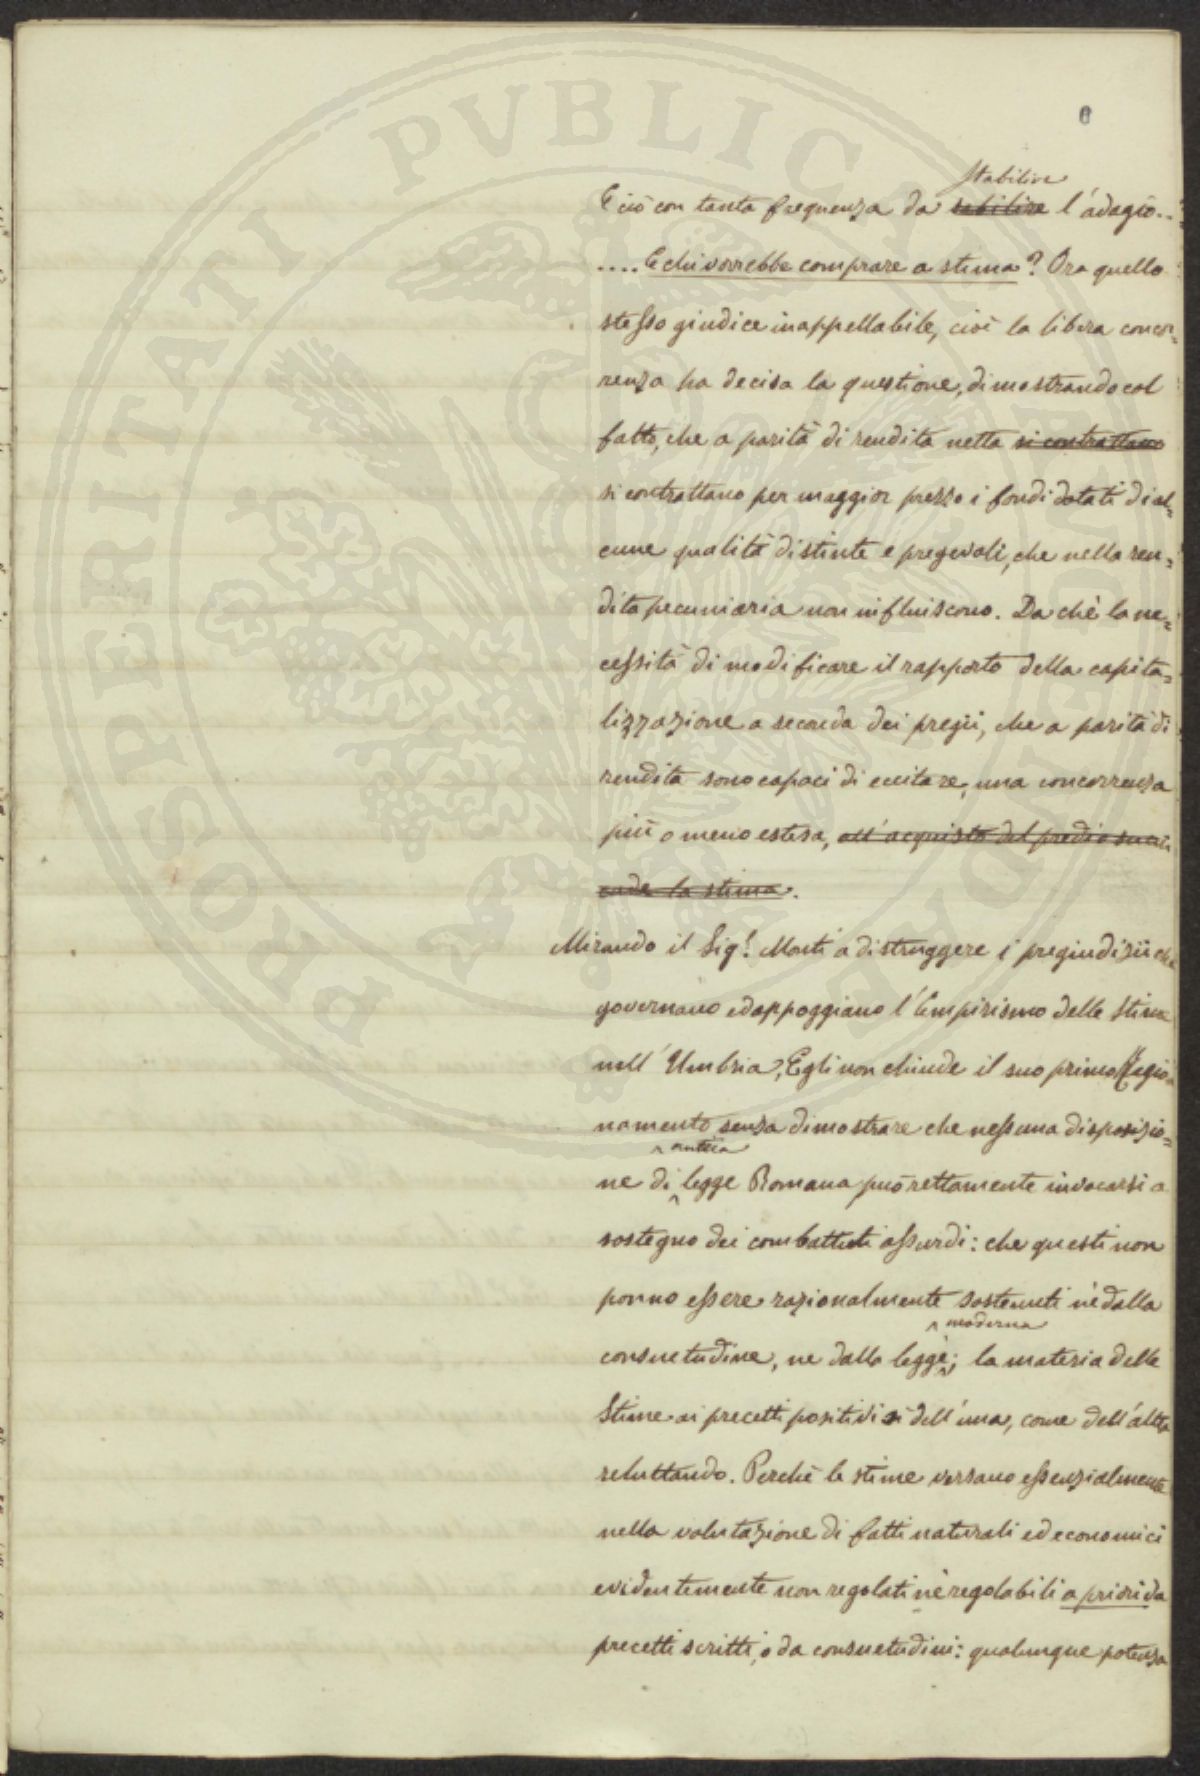 PROSPERITATI PVBLICAE AVGENDAE
6
stabilire
E ciò con tanta frequenza da sabilire l'adagio..
.... E chi vorrebbe comprare a stima? Ora quello
stesso giudice inappellabile, cioè la libera concor=
renza ha decisa la questione, dimostrando col
fatto, che a parità di rendita netta si contrattano
si contrattano per maggior prezzo i fondi dotati di al=
cune qualità distinte e pregevoli, che nella ren=
dita pecuniaria non influiscono. Da chè la ne=
cessità di modificare il rapporto della capita=
lizzazione a seconda dei pregii, che a parità di
rendita sono capaci di eccitare, una concorrenza
più o meno estesa, all'acquisto del predio su cui
cade la stima.
Mirando il Sig.r Monti a distruggere i pregiudizii che
governano ed appoggiano l'Empirismo delle Stime
nell'Umbria, Egli non chiude il suo primo Ragio
namento senza dimostrare che nessuna disposizio=
antica
ne di legge Romana può rettamente invocarsi a
sostegno dei combattuti assurdi: che questi non
ponno essere razionalmente sostenuti nè dalla
moderna
consuetudine, ne dalla legge; la materia delle
Stime ai precetti positivi sì dell'una, come dell'altra
reluttando. Perchè le stime versano essenzialmente
nella valutazione di fatti naturali ed economici
evidentemente non regolati nè regolabili a priori da
precetti scritti, o da consuetudini: qualunque potenza